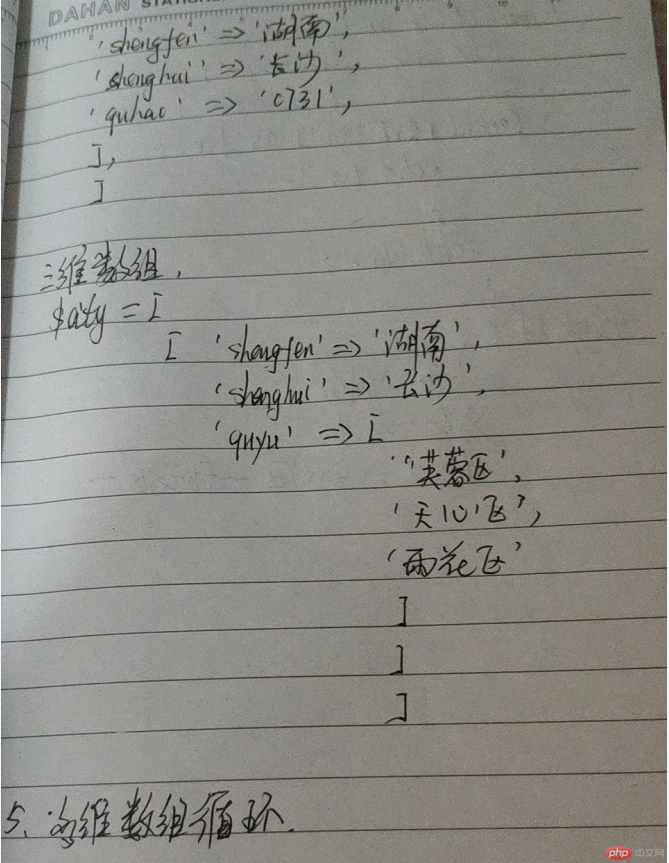 DAHAN STATION
'shengfen' => '湖南',
'shenghui' => '长沙',
'quhao' => '0731',
],
]
三维数组,
$city = [
[ 'shengfen' => '湖南',
'shenghui' => '长沙',
'quyu' => [
'芙蓉区',
'天心区',
'雨花区'
]
]
]
5、多维数组循环.
php 中文网